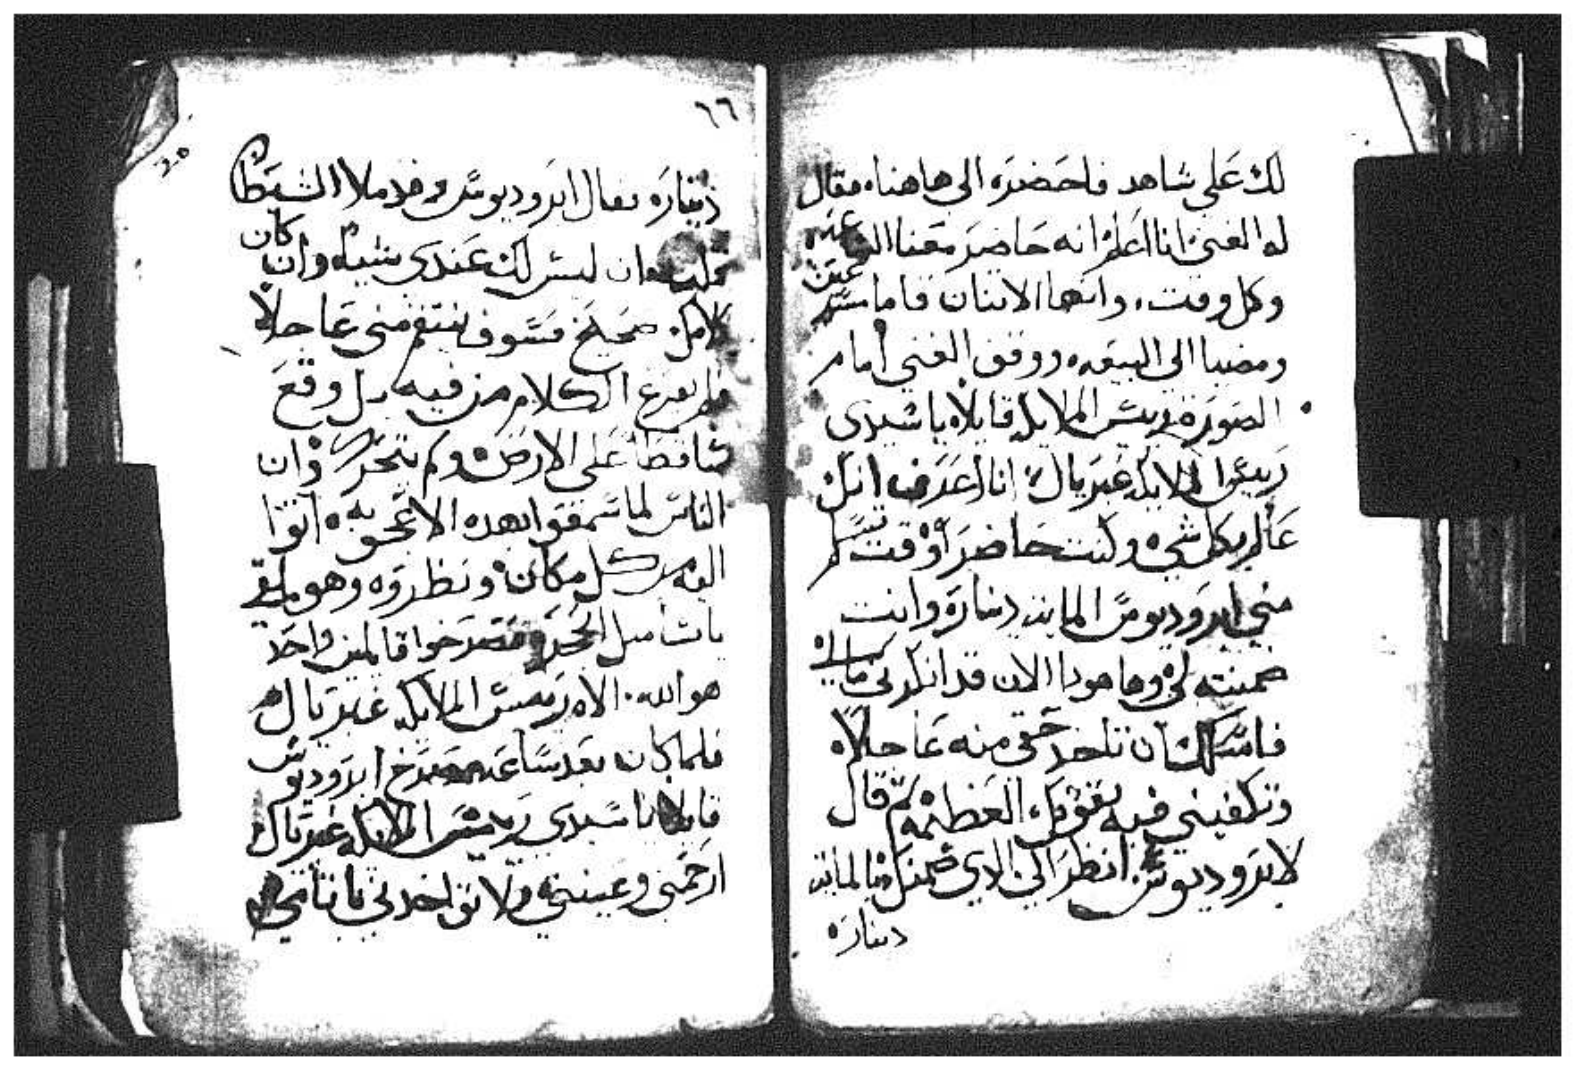 لك على شاهد فاحضره الى هاهناه فقال
له الغني انا اعلم انه حاضر معنا
وكل وقت، وانهما الاتنان قاما
ومضيا الى البيعه ووقف الغني أمام
الصوره ريس الملايكه قايلاه يا سيدى
ريس الملايكه غبريال انا اعرف انك
عالم بكل شيء وكنت حاضر اوقت تسلم
مني ابروديوس المايه دينارة وانت
ضمينته لي وها هودا الان قد انكرني مالي
فاسالك ان تاخد حقي منه عاجلاه
وتكفيني فيه بقوتك العظيمه ثم قال
لابروديوس انظر الى الدي ضمنك في المايه
دينارة
٦٦
دينارة فقال ابروديوس وقد ملا الشيطان
قلبه ان ليس لك عندى شياه وان كان
كلامك صحيح فسوف ينتقم مني عاجلاً
فلم يفرغ الكلام من فيه بل وقع
ساقطا على الارض ولم يتحرك وان
الناس لما سمعوا بهده الاعجوبه اتوا
اليه من كل مكان ونظروه وهو ملقي
فصرخوا قايلين واحد
هو الله الاه ريس الملايكه غبريال
فلما كان بعد ساعه صرخ ابروديوس
قايلا يا سيدى ريس الملايكه غبريال
ارحمني وعينني ولا تواخدني